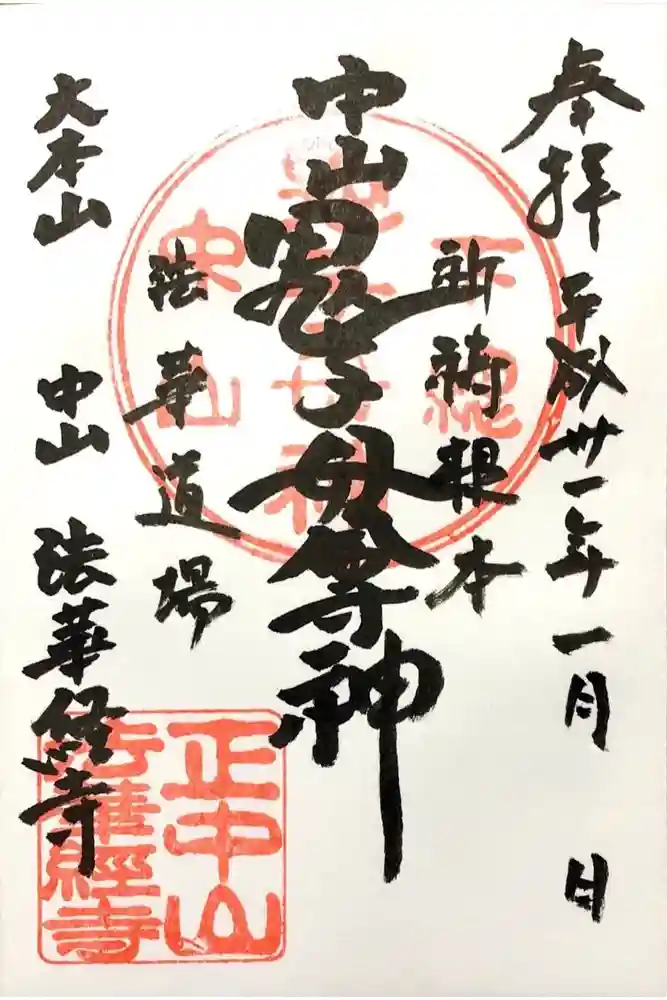 奉拝 平成卅一年一月 日
祈祷根本
中山鬼子母尊神
法華道場
大本山 中山 法華経寺
下總
中山
正中山
法華經寺